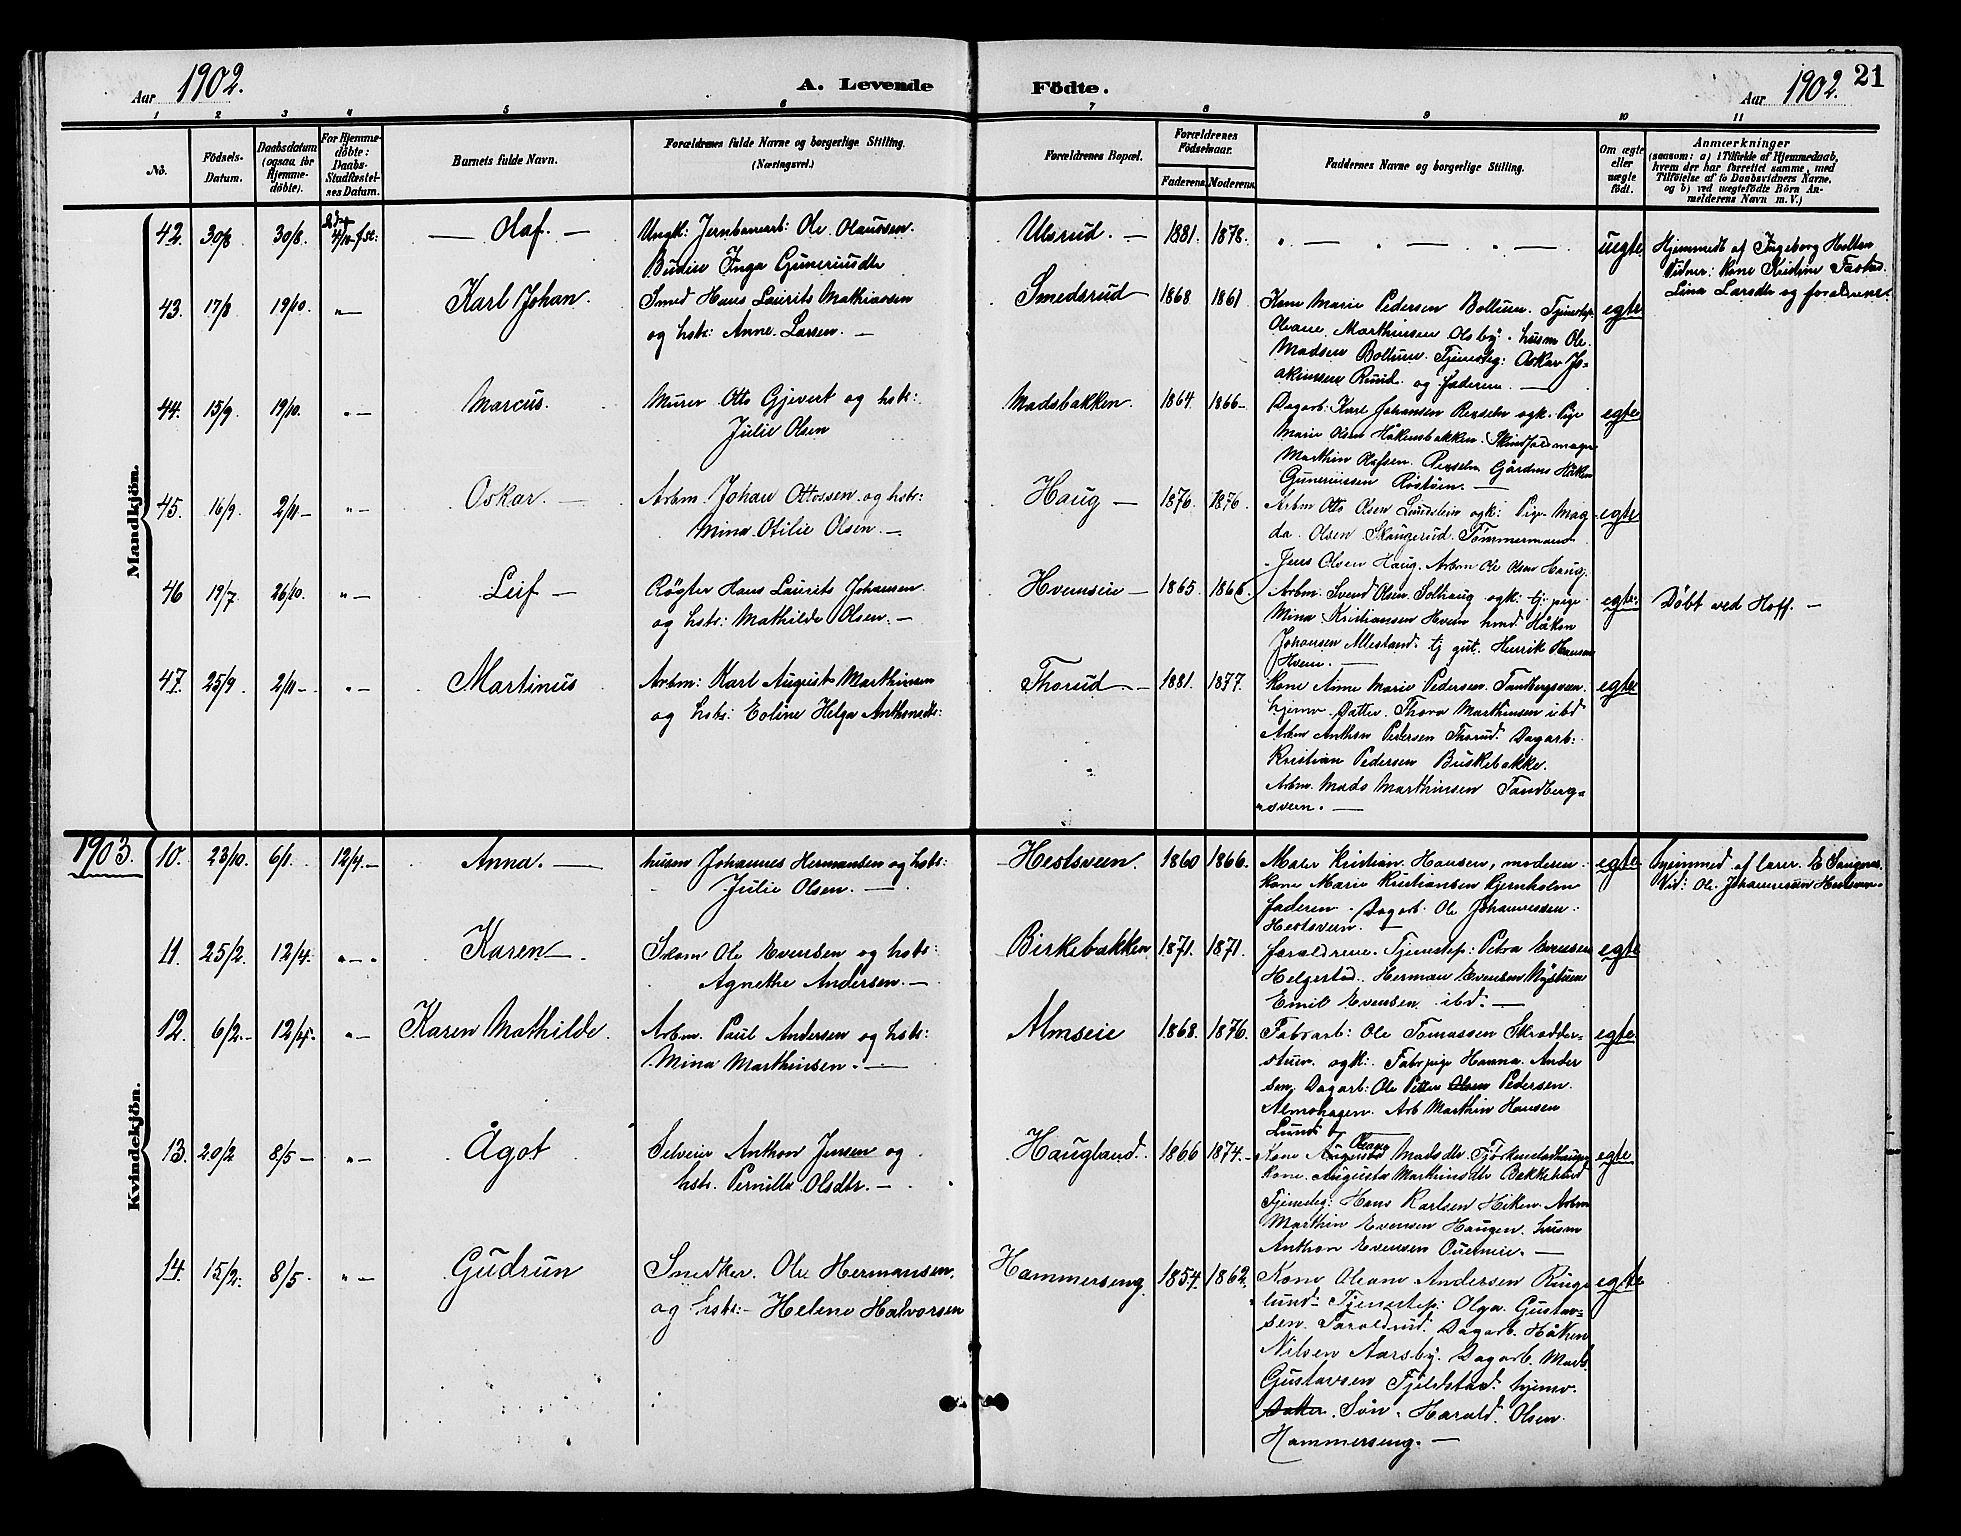 Aar 1902. A. Levende Födte. Aar 1902. 21
1 2 3 4 5 6 7 8 9 10 11
No.
Födsels-
Datum.
Daabsdatum
(ogsaa for
Hjemme-
döbte).
For Hjemme-
döbte:
Daabs-
Stadfæstel-
ses Datum.
Barnets fulde Navn.
Forældrenes fulde Navne og borgerlige Stilling.
(Næringsvei.)
Forældrenes Bopæl.
Forældrenes
Födselsaar.
Faderens. Moderens.
Faddernes Navne og borgerlige Stilling.
Om ægte
eller
uægte
födt.
Anmærkninger
(saasom: a) i Tilfælde af Hjemmedaab,
hvem der har forrettet samme, med
Tilföielse af to Daabsvidners Navne,
og b) ved uægtefödte Börn An-
melderens Navn m. V.)
Mandkjön.
42. 30/8 30/8. 4/10 fst: — Olaf. —
Ungk: Jernbanearb: Ole Olaussen.
Budeie Inga Guneriusdtr
Ulsrud. — 1881. 1878. " — " — " — uegte
Hjemmedt af Ingeborg Holten
Vidner: Kone Kristine
Lina Larsdtr og forældrene.
43. 17/8 19/10. "— Karl Johan.
Smed Hans Laurits Mathiassen
og hstr: Anne Larsen. —
Smedsrud — 1868 1861
Kone Marie Pedersen Bollum. Tjenestep.
Oleane Marthinsen Olsby. husm Ole
Madsen Bollum. Tjenesteg: Oskar Jo-
akimsen Ruud. og faderen. —
egte
44. 15/9. 19/10. "— Marcus.
Murer Otto Gjevert og hstr:
Julie Olsen
Madsbakken. 1864 1866—
Dagarb: Karl Johansen ogk. Pige
Marie Olsen Håkensbakken.
Marthin Olafsen. Gårdbrs Håken
Guneriussen Röstöen. —
egte
45. 16/9. 2/11— "— Oskar. —
Arbm. Johan Ottossen og hstr:
Mina Otilie Olsen. —
Haug — 1876. 1876.
Arbm Otto Olsen Lundstein ogk: Pige Mag-
da Olsen Skaugerud. Tömmermand
Jens Olsen Haug. Arbm Ole Olsen Haug.
egte
46 19/7. 26/10. "— Leif —
Røgter Hans Laurits Johansen
og hstr: Mathilde Olsen. —
Hvemseie — 1865 1866
Arbm: Svend Olsen Solhaug ogk: tj. pige
Mina Kristiansen Hvem hmd Håken
Johansen Alestand. tj gut. Henrik Hansen
Hvem. —
egte: Döbt ved Hoff. —
47. 25/9. 2/11— "— Martinus
Arbm: Karl August Marthinsen
og hstr: Eoline Helga Anthonsdtr:
Thorud — 1881. 1877.
Kone Anne Marie Pedersen. Tandbergsveen.
hjemv. Datter. Thora Marthinsen ibd
Arbm Anthon Pedersen Thorud. Dagarb:
Kristian Pedersen Buskebakke.
Arbm. Mads Marthinsen Tandberg-
sveen. —
egte
1903.
Kvindekjön.
10. 23/10. 6/1. 12/4.— Anna. —
husm Johannes Hermansen og hstr:
Julie Olsen. —
Hestsveen 1860 1866.
Maler Kristian Hansen, moderen
kone Marie Kristiansen Kjernholm
faderen. Dagarb. Ole Johannessen
Hestsveen. —
egte hjemmed af lærer E
Vid: Ole Johannessen Hestsveen.
11. 25/2. 12/4. "—" Karen —
Skom Ole Evensen og hstr:
Agnethe Andersen. —
Birkebakken 1871. 1871.
forældrene. Tjenestep: Petra Evensen
Helgestad. Herman Evensen Nystuen
Emil Evensen ibd. —
egte
12. 6/2.— 12/4.— "— Karen Mathilde.
Arbm. Paul Andersen og hstr:
Mina Marthinsen. —
Almseie 1868. 1876.
Fabrarb: Ole Tomassen Skrædder-
stuen ogk: Fabr.pige Hanna Ander
sen, Dagarb: Ole Petter Olsen Pedersen
Almshagen. Arb Marthin Hansen
Lund
egte
13. 20/2 8/5— "— Ågot
Selveier Anthon Jensen og
hstr. Pernille Olsdtr. —
Haugland. 1866 1874.—
Oleane
Kone Augusta Madsdtr
kone Augusta Marthinsdtr Bakkehaud
Tjenesteg: Hans Karlsen Heken. Arbm
Marthin Evensen Haugen. husm
Anthon Evensen —
egte
14. 15/2. 8/5. "— Gudrun
Snedker. Ole Hermansen.
og hstr:— Helene Halvorsen
Hammerseng. 1854. 1862.
Kone Oleane Andersen Ringe
lund. Tjenestep: Olga Gustav-
sen. Dagarb. Håken
Nilsen Aarsby. Dagarb. Mads
Gustavsen Fjeldstad. hjemv.
Datter Sön. Harald Olsen
Hammerseng. —
egte